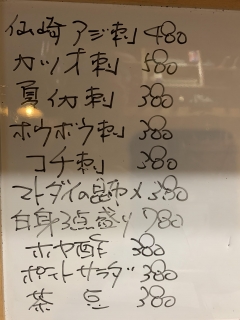 仙崎アジ刺 480
カツオ刺 580
夏イカ刺 380
ホウボウ刺 380
コチ刺 380
マトダイの昆布〆 380
白身3点盛り 780
ホヤ酢 380
ポテトサラダ 380
茶豆 380